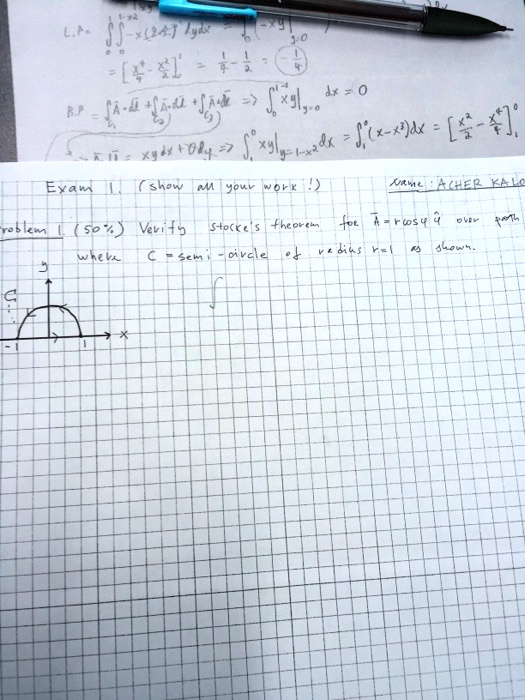 L.P. = ∫∫ -x (2y) dy dx =
= [x⁴/4 - x²/2]' = 1/4 - 1/2 = (-1/4)
R.P = ∫Ā·dl + ∫Ā·dl + ∫Ā·dl => ∫ xy|y=0 dx = 0
xy dx + 0 dy => ∫ xy|y=1-x² dx = ∫(x-x³)dx = [x²/2 - x⁴/4]
Exam 1. (show all your work!) Name: ACHER KALO
roblem 1. (50%) Verify stocke's theorem for Ā = r cosφ φ̂ over path
where C = semi-circle of radius r=1 as shown.
y
C
x
-1 1
∫